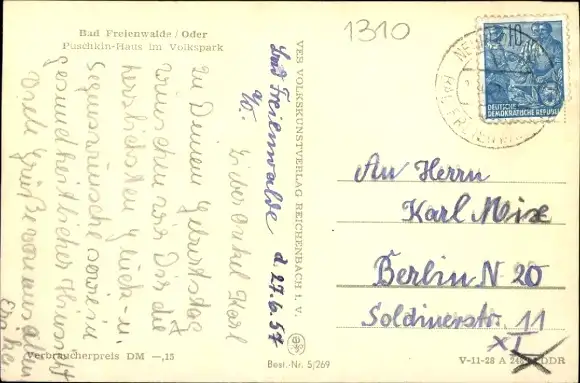 Bad Freienwalde / Oder
Puschkin-Haus im Volkspark
1310
Bad Freienwalde d. 27.6.57
a/O.
Lieber Onkel Karl
zu Deinem Geburtstag
wünschen wir Dir die
herzlichsten Glück- u.
Segenswünsche sowie in
gesundheitlicher Hinsicht
Viele Grüße von uns allen
VEB VOLKSKUNSTVERLAG REICHENBACH I. V.
10
DEUTSCHE
DEMOKRATISCHE REPUBLIK
An Herrn
Karl Mixe
Berlin N 20
Soldinerstr. 11
XI
Verbraucherpreis DM —,15
Best.-Nr. 5/269
V-11-28 A
DDR